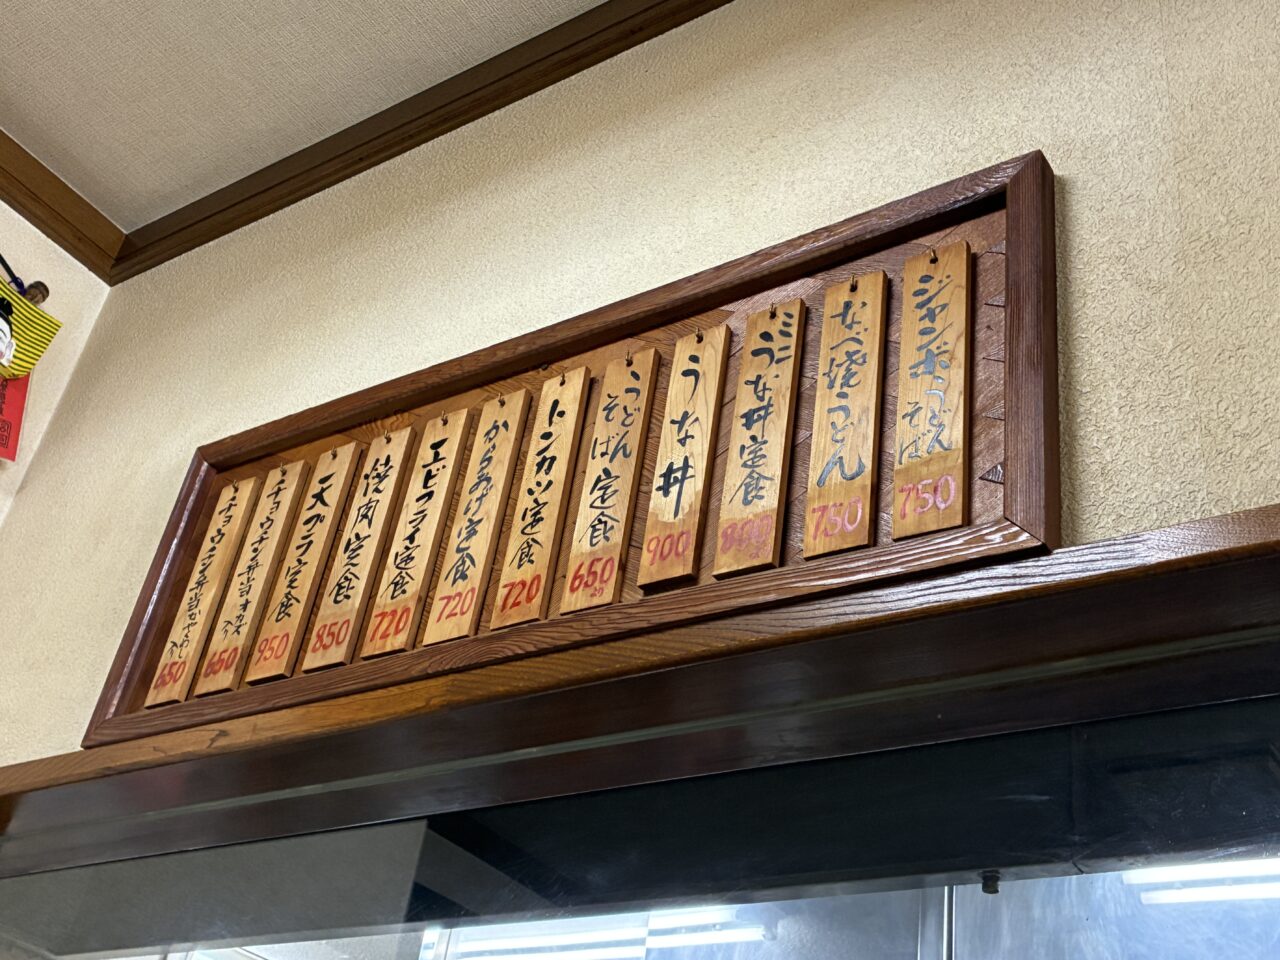 ジャンボうどん
そば
750
なべ焼うどん
750
ミニ
うな丼定食
うな丼
900
うどん
そば
定食
650
より
トンカツ定食
720
からあげ定食
720
エビフライ定食
720
焼肉定食
850
天プラ定食
950
チョウチン弁当オカズ
入り
650
チョウチン弁当かやくめし
入り
650